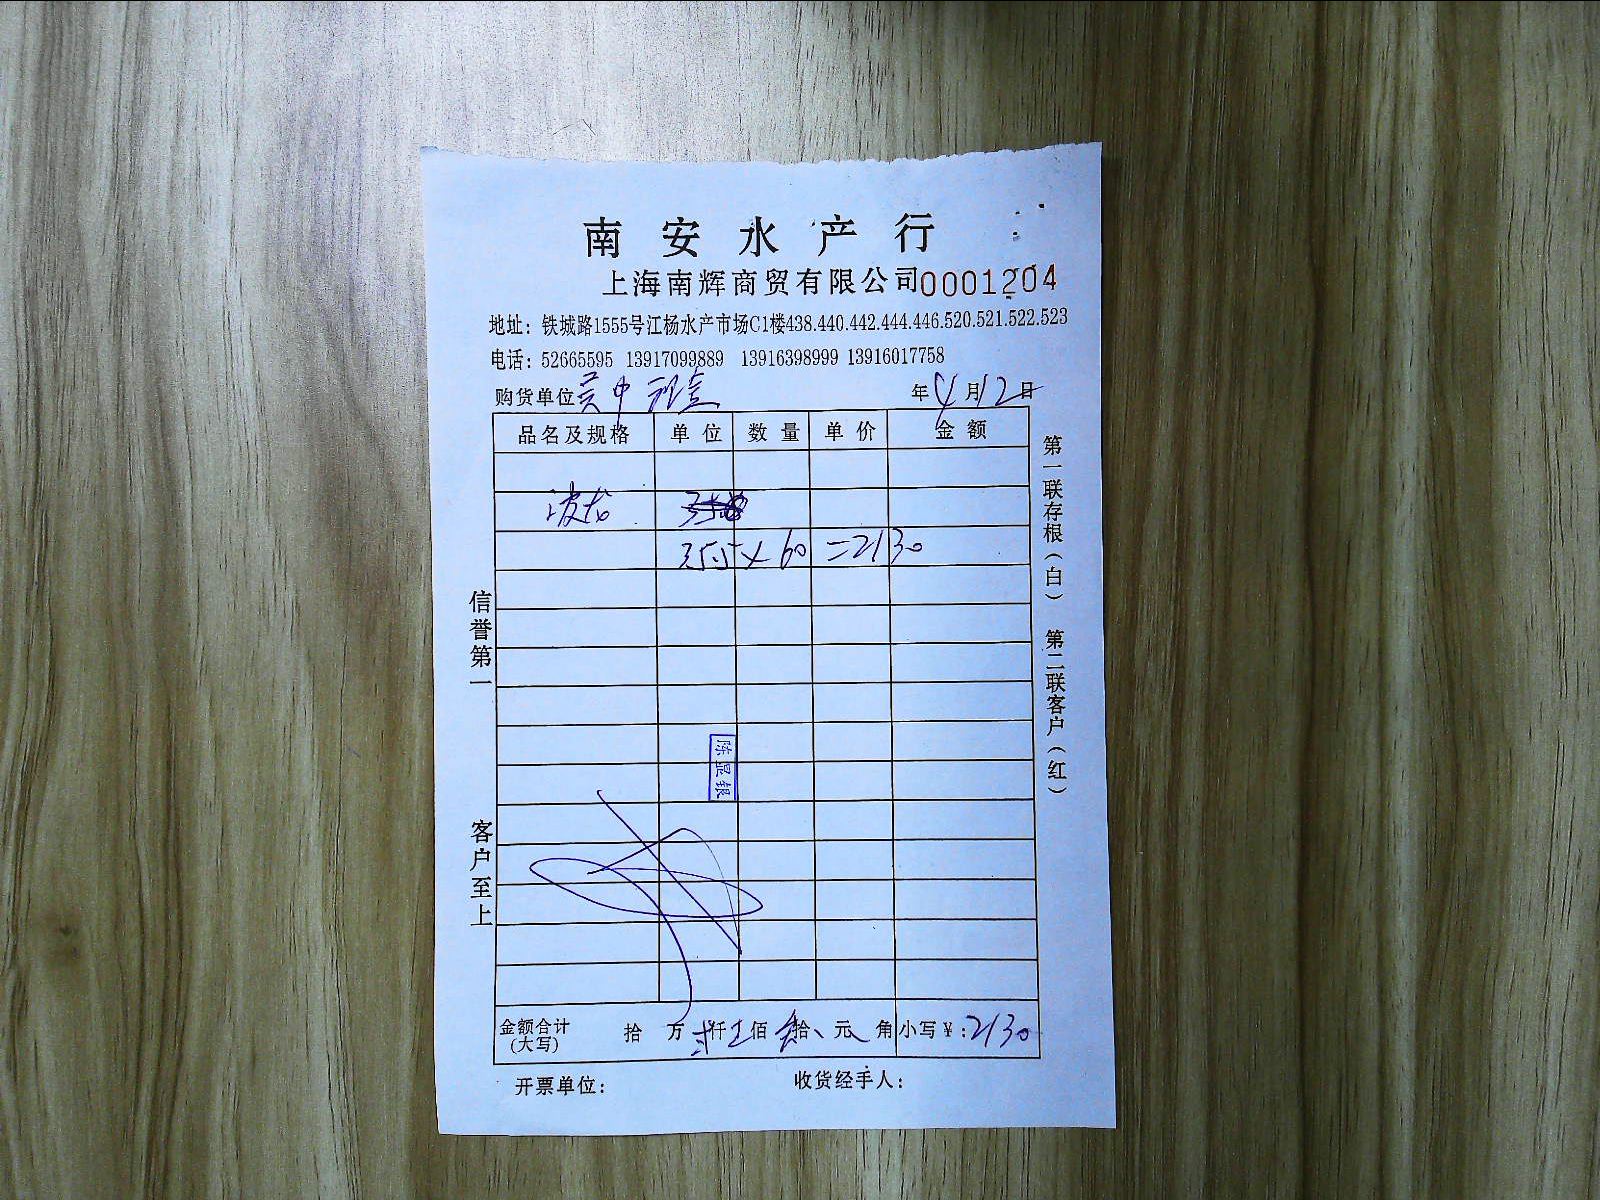 南安水产行
上海南辉商贸有限公司 0001204
地址：铁城路1555号江杨水产市场C1楼438.440.442.444.446.520.521.522.523
电话：52665595 13917099889 13916398999 13916017758
购货单位 年4月12日
品名及规格 单位 数量 单价 金额
波龙
35.5×60=2130
陈显银
金额合计(大写) 拾 万 贰仟 壹佰 叁拾 元 角 小写¥：2130
开票单位： 收货经手人：
信誉第一 客户至上
第一联存根（白） 第二联客户（红）